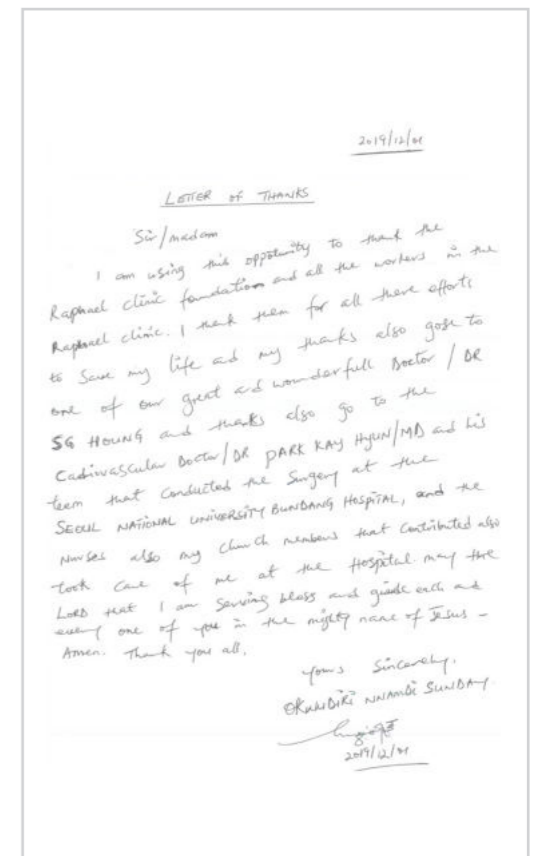 2019/12/01
LETTER OF THANKS
Sir/madam
I am using this oppotunity to thank the
Raphael clinic foundation and all the workers in the
Raphael clinic. I thank them for all there efforts
to Save my life and my thanks also gose to
one of our great and wounderfull Doctor / DR
SG HOUNG and thanks also go to the
Cadiovascular Doctor/DR PARK KAY HyUN/MD and his
team that conducted the Surgery at the
SEOUL NATIONAL UNIVERSITY BUNDANG HOSPITAL, and the
Nurses also my church members that Contributed also
took care of me at the Hospital. may the
LORD that I am Serving bless and guide each and
every one of you in the mighty name of Jesus -
Amen. Thank you all.
yours Sincerely.
OKUNDIRI NNAMDI SUNDAY
2019/12/01